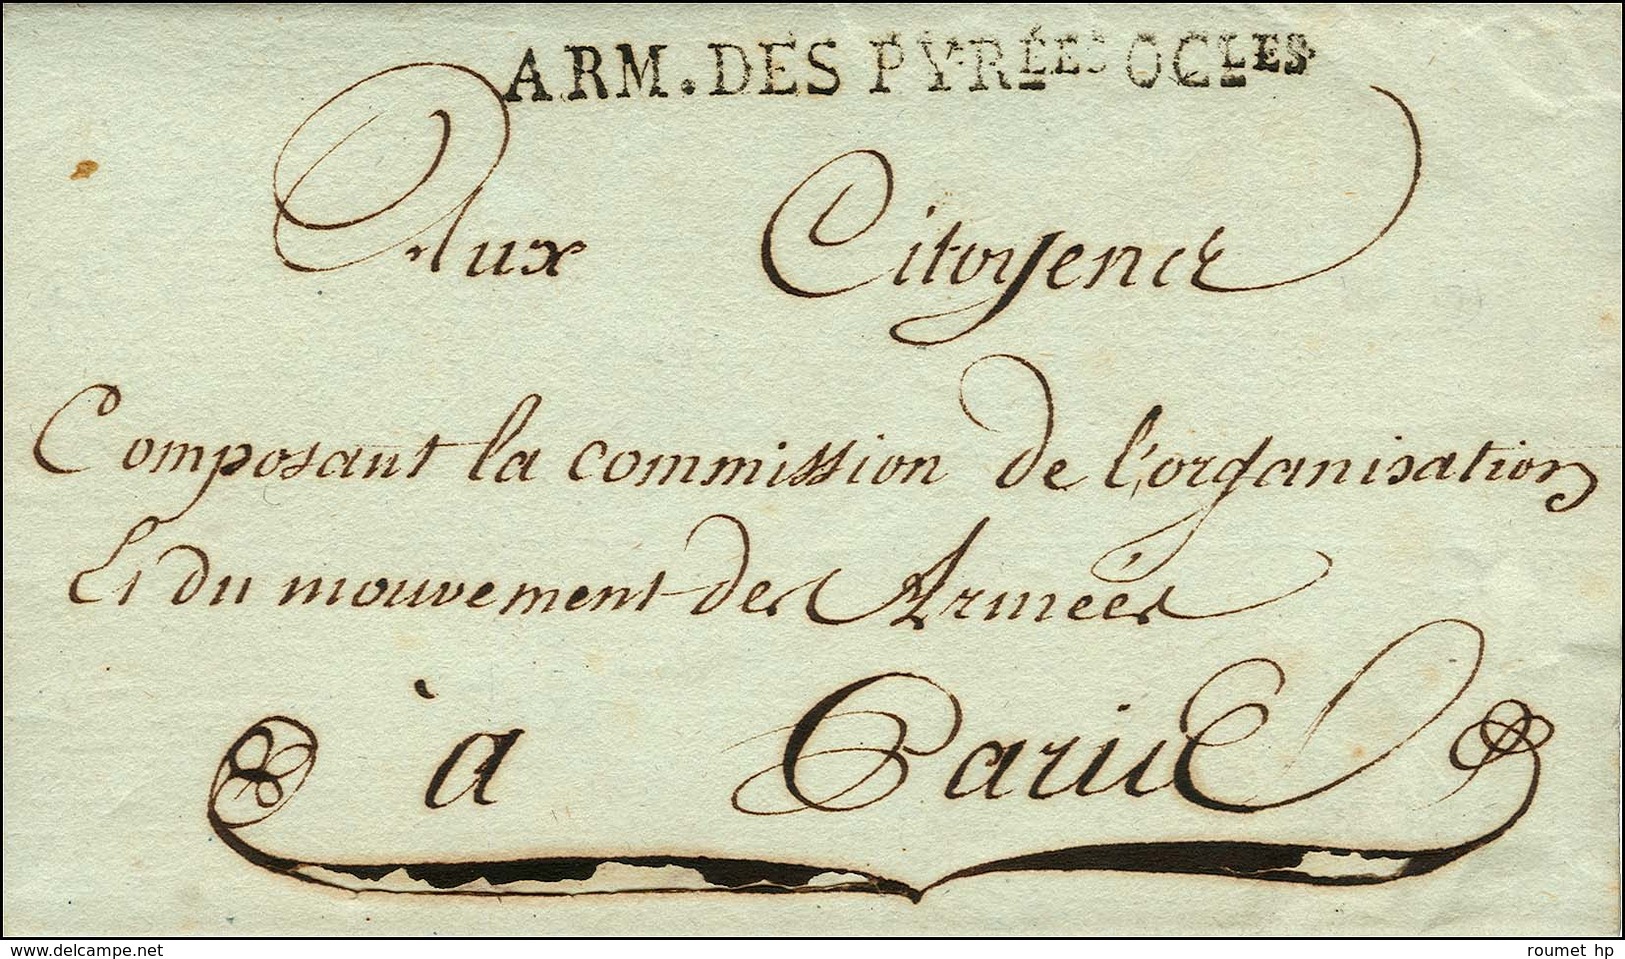 ARM. DES PYRÉES OCLES
Aux Citoyens
Composant la commission de l'organisation
Et du mouvement des Armées
à Paris
www.delcampe.net
roumet hp